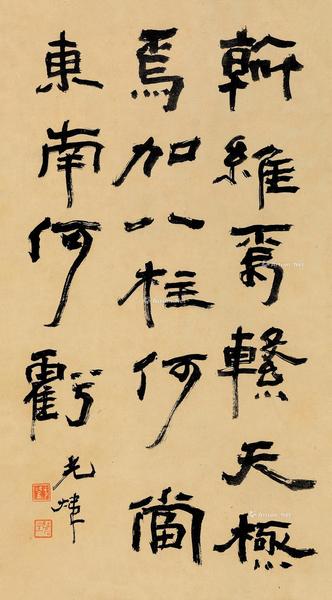 斡維焉繫天極
焉加八柱何當
東南何虧
光煒